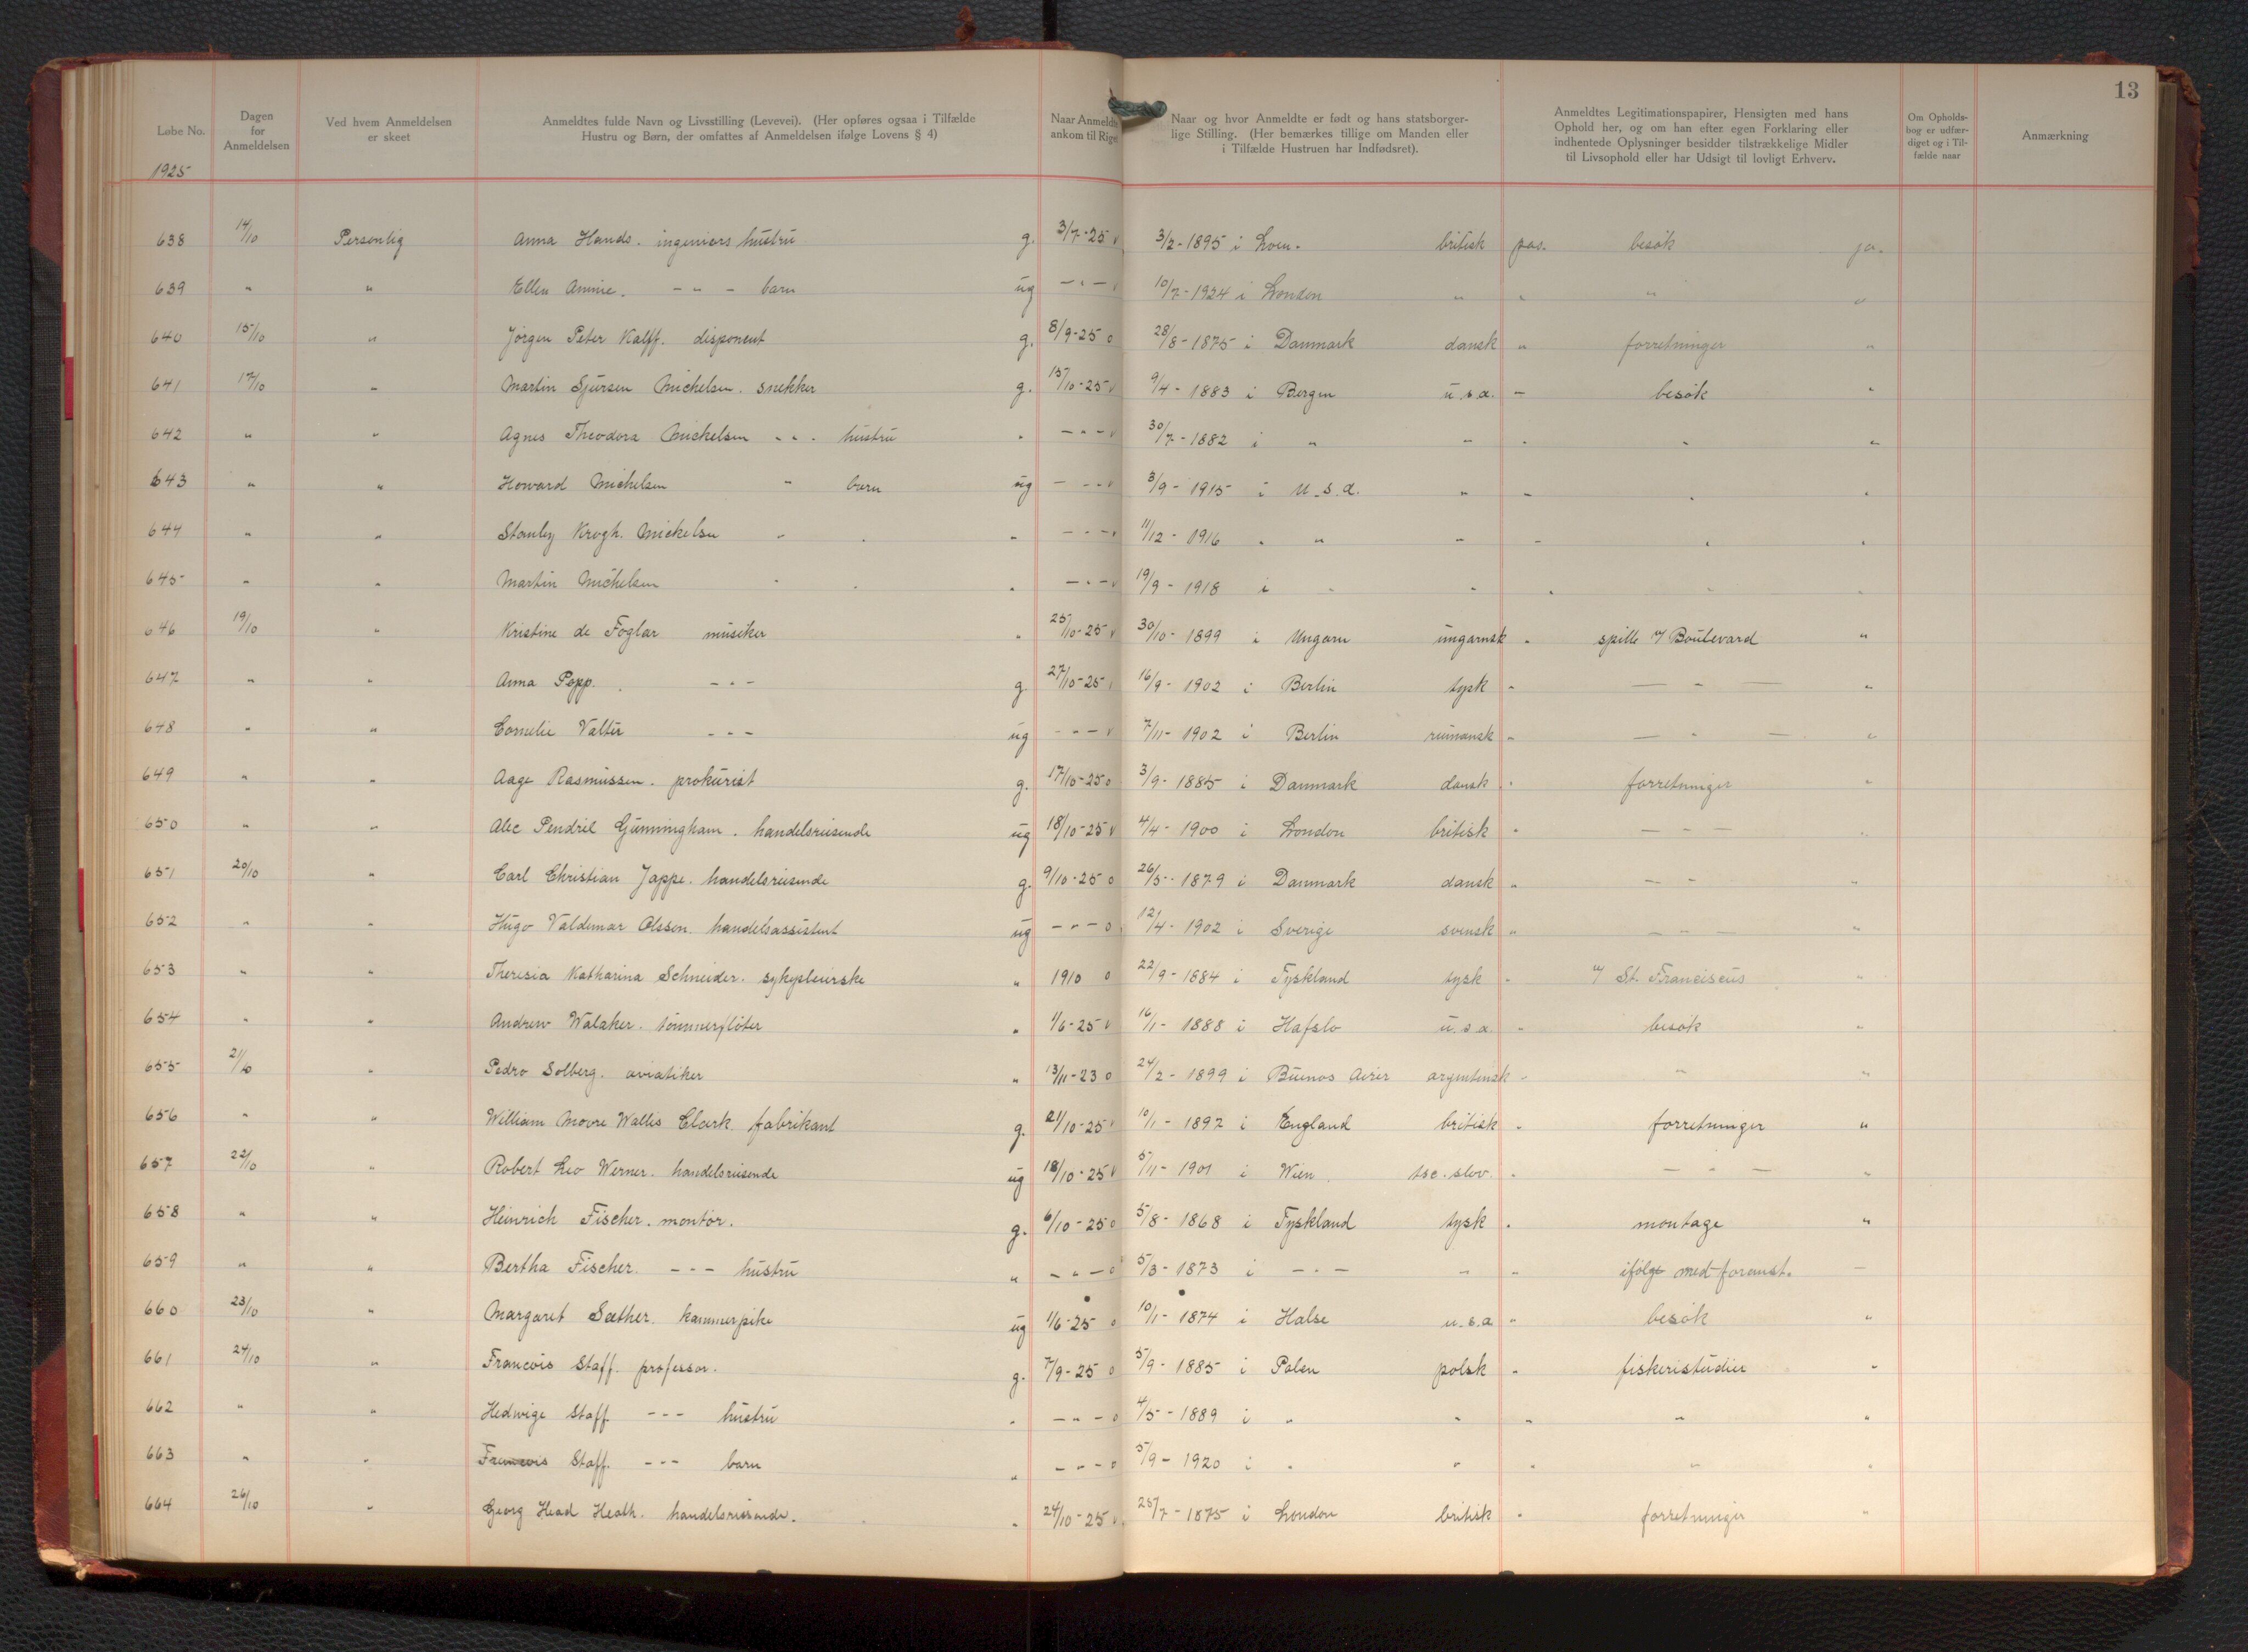 13
Løbe No. Dagen for Anmeldelsen Ved hvem Anmeldelsen er skeet Anmeldtes fulde Navn og Livsstilling (Levevei). (Her opføres ogsaa i Tilfælde Hustru og Børn, der omfattes af Anmeldelsen ifølge Lovens § 4) Naar Anmeldte ankom til Riget Naar og hvor Anmeldte er født og hans statsborgerlige Stilling. (Her bemærkes tillige om Manden eller i Tilfælde Hustruen har Indfødsret). Anmeldtes Legitimationspapirer, Hensigten med hans Ophold her, og om han efter egen Forklaring eller indhentede Oplysninger besidder tilstrækkelige Midler til Livsophold eller har Udsigt til lovligt Erhverv. Om Opholdsbog er udfærdiget og i Tilfælde naar Anmærkning
1925
638 14/10 Personlig Anna Hands. ingeniørs hustru g. 3/7-25 v 3/2-1895 i Loen. britisk pas. besøk ja.
639 " " Ellen Annie. - " - barn ug - " - v 10/7-1924 i London " " " "
640 15/10 " Jørgen Peter Kalff. disponent g. 8/9-25 o 28/8-1875 i Danmark dansk " forretninger "
641 17/10 " Martin Sjursen Michelsen. snekker g. 15/10-25 v 9/4-1883 i Bergen u.s.a. - besøk "
642 " " Agnes Theodora Mickelsen - " - hustru " - " - v 30/7-1882 i " " " " "
643 " " Howard Michelsen " barn ug - " - v 3/9-1915 i U.S.A. " " " "
644 " " Stanley Krogh. Mickelsen " " " - " - v 11/12-1916 " " " " " "
645 " " Martin Michelsen " " " - " - v 19/9-1918 i " " " " "
646 19/10 " Kristine de Foglar musiker " 25/10-25 v 30/10-1899 i Ungarn ungarnsk " spille v/ Boulevard "
647 " " Anna Popp. - " - g. 27/10-25 16/9-1902 i Berlin tysk " - " - "
648 " " Cornelie Valter - " - ug - " - v 7/11-1902 i Berlin rumænsk " - " - "
649 " " Aage Rasmussen. prokurist g. 17/10-25 o 3/9-1885 i Danmark dansk " forretninger "
650 " " Alec Pendril Gunningham. handelsreisende ug 18/10-25 v 4/4-1900 i London britisk " - " - "
651 20/10 " Carl Christian Jappe. handelsreisende g. 9/10-25 o 26/5-1879 i Danmark dansk " - " "
652 " " Hugo Valdemar Olsson. handelsassistent ug - " - o 12/4-1902 i Sverige svensk " - " - "
653 " " Theresia Katharina Schneider. sykepleierske " 1910 o 22/9-1884 i Tyskland tysk " v/ St. Franciscus "
654 " " Andrew Walaker. tømmerfløter " 1/6-25 v 16/1-1888 i Hafslo u.s.a. " besøk "
655 21/10 " Pedro Solberg. aviatiker " 13/11-23 o 24/2-1899 i Buenos Aires argentinsk " " "
656 " " William Moore Wallis Clark. fabrikant g. 21/10-25 10/1-1892 i England britisk " forretninger "
657 22/10 " Robert Leo Werner. handelsreisende ug 18/10-25 v 5/11-1901 i Wien. tsc. slov. " - " - "
658 " " Heinrich Fischer. montør. g. 6/10-25 o 5/8-1868 i Tyskland tysk " montage "
659 " " Bertha Fischer. - " - hustru " - " - o 5/3-1873 i - " - " " ifølge med foranst. -
660 23/10 " Margaret Sæther. kammerpike ug 1/6-25 o 10/1-1874 i Halse u.s.a " besøk "
661 24/10 " Francois Staff. professor. g. 7/9-25 o 5/9-1885 i Polen polsk " fiskeristudier "
662 " " Hedwige Staff. - " - hustru " - " - o 4/5-1889 i " " " " "
663 " " Francois Staff. - " - barn " - " - o 5/9-1920 i " " " " "
664 26/10 " Georg Head Heath. handelsreisende. " 24/10-25 v. 25/7-1875 i London britisk " forretninger "